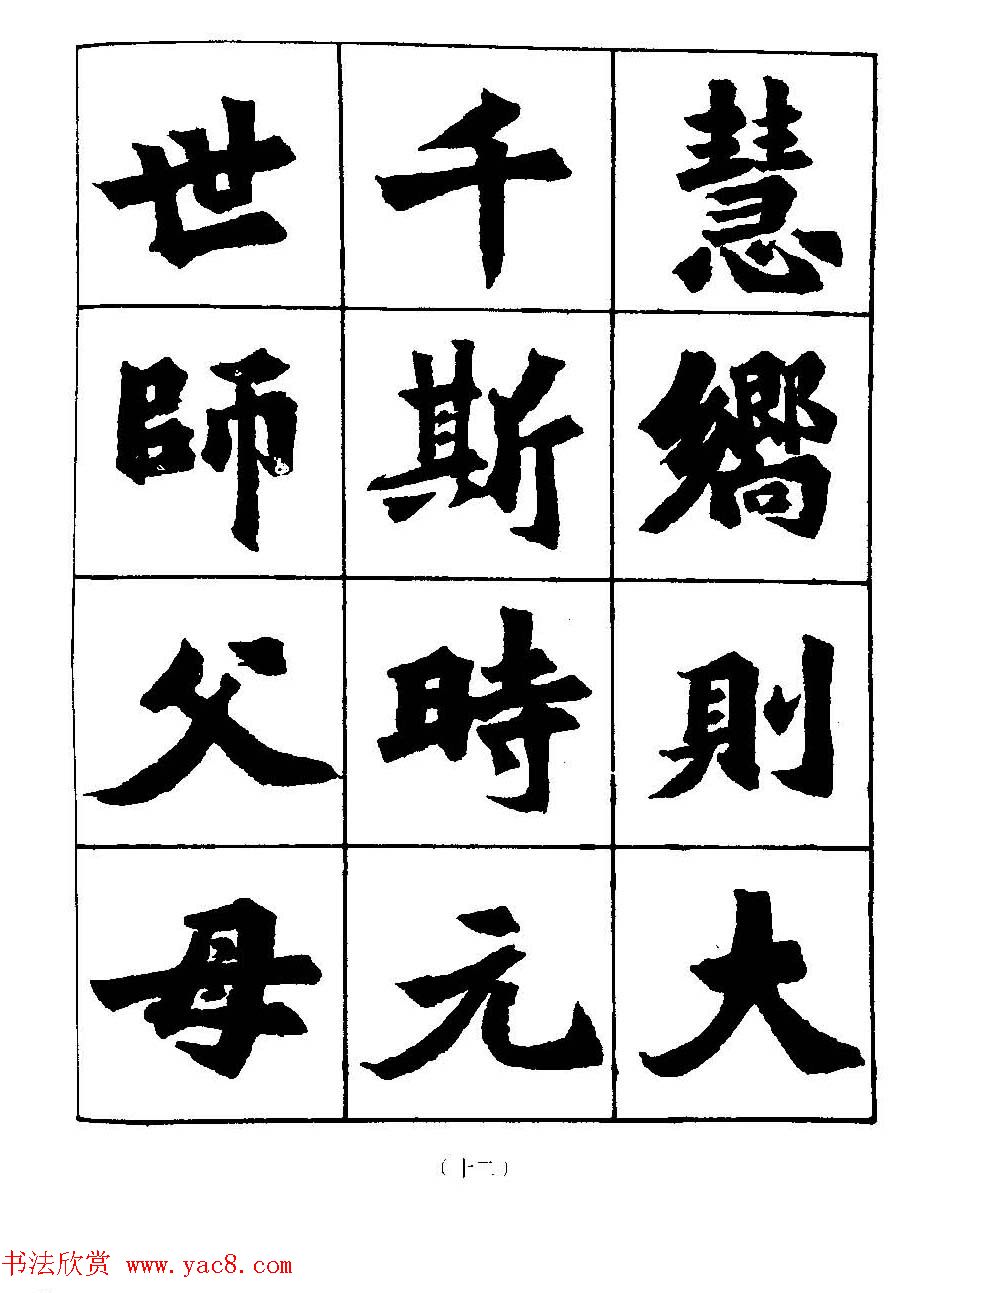 慧嚮則大
千斯時元
世師父母
（十二）
书法欣赏 www.yac8.com